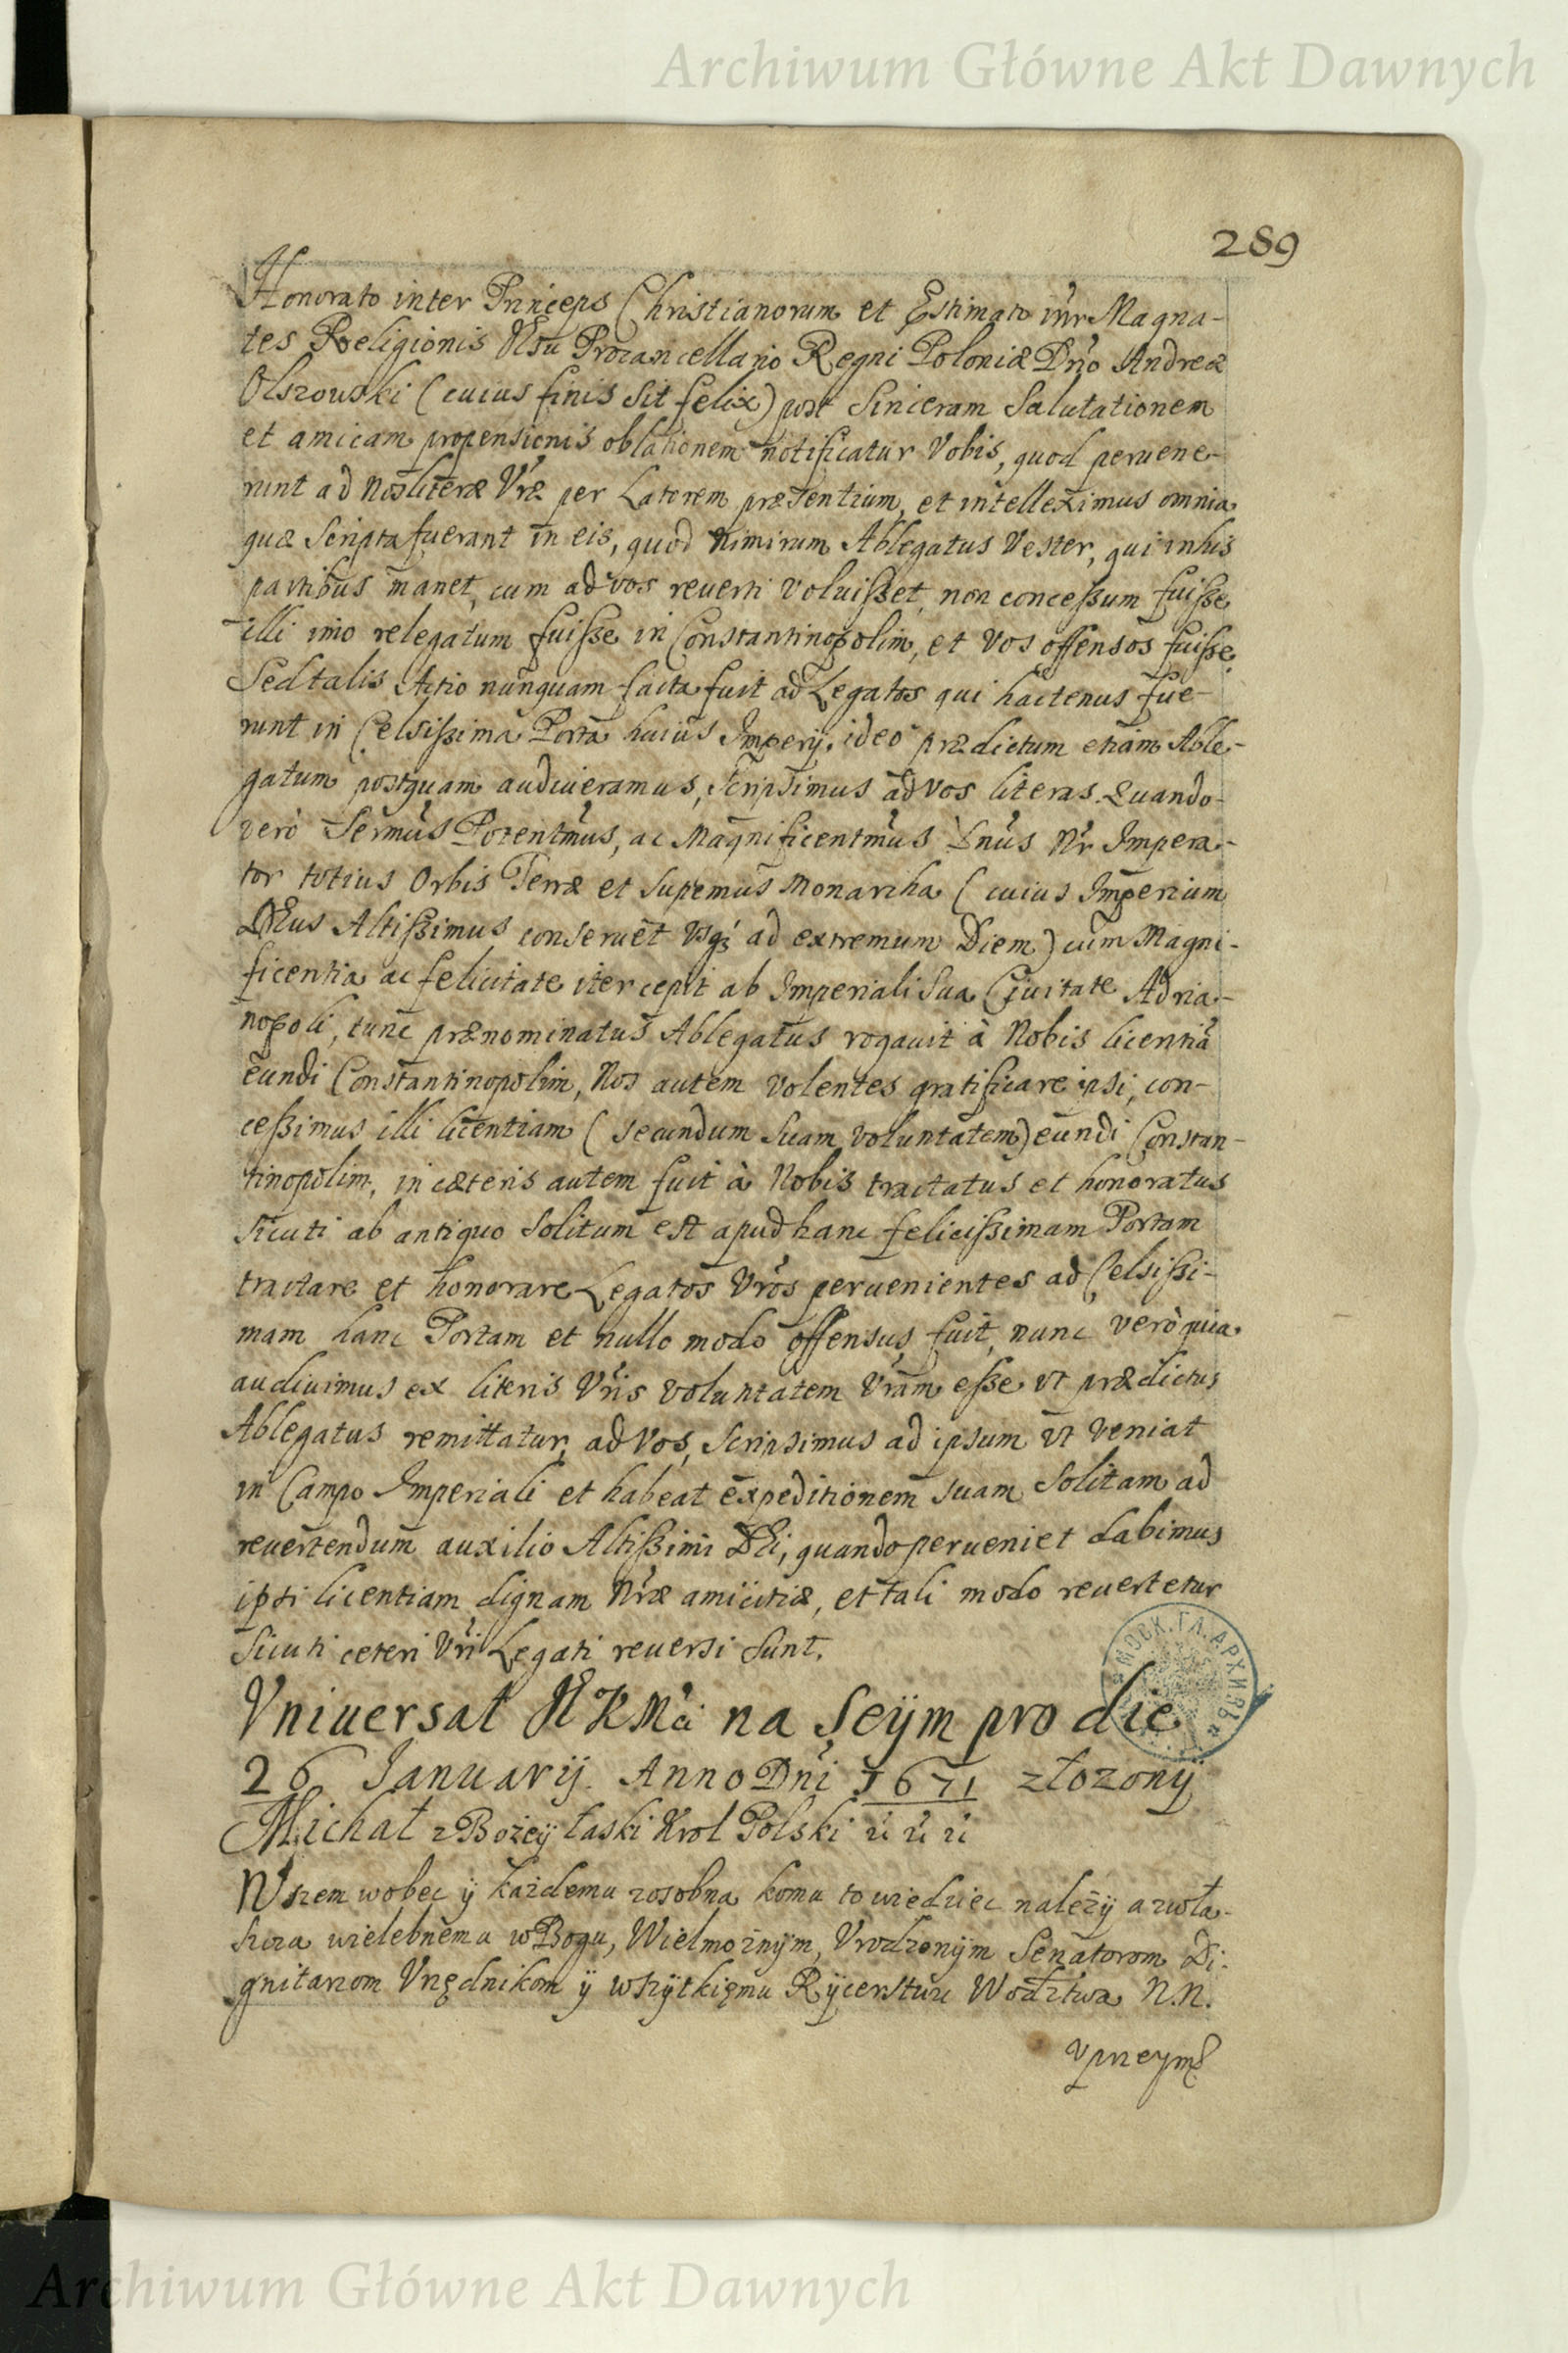 Archiwum Główne Akt Dawnych
289
Honorato inter Princeps Christianorum et Estimato int'r Magna-
tes Religionis JEsu Procancellario Regni Poloniæ Dn'o Andreæ
Olszowski (cuius finis sit felix) post Sinceram Salutationem
et amicam propensionis oblationem notificatur Vobis, quod peruene-
runt ad Nos literæ Vr'æ per Latorem præsentium, et intelleximus omnia
quæ Scripta fuerant in eis, quod nimirum Ablegatus Vester, qui in his
partibus manet, cum ad vos reuerti voluißet, non conceßum fuiße
illi imo relegatum fuiße in Constantinopolim, et Vos offensos fuiße
Sed talis Actio nunquam facta fuit ad Legatos qui hactenus fue-
runt in Celsißima Porta huius Imperij, ideo prædictum etiam Able-
gatum postquam audiueramus, scripsimus ad vos literas. Quando
verò Serm'us Potentm'us, ac Magnificentm'us Dn'us Nr' Impera-
tor totius Orbis Terræ et Supremus Monarcha (cuius Imperium
DEus Altißimus conseruet Vsq3 ad extremum Diem) cum Magni-
ficentia ac felicitate iter cepit ab Imperiali Sua Ciuitate Adria-
nopoli, tunc prænominatus Ablegatus rogauit à Nobis licentiã
eundi Constantinopolim, Nos autem volentes gratificare ipsi, con-
ceßimus illi licentiam (secundum Suam voluntatem) eundi Constan-
tinopolim, in cæteris autem fuit à Nobis tractatus et honoratus
sicuti ab antiquo Solitum est apud hanc felicißimam Portam
tractare et honorare Legatos Vr'os peruenientes ad Celsißi-
mam hanc Portam et nullo modo offensus fuit, nunc verò quia
audiuimus ex literis Vr'is voluntatem Vr'am eße vt prædictus
Ablegatus remittatur ad Vos, Scripsimus ad ipsum vt veniat
in Campo Imperiali et habeat expeditionem suam Solitam ad
reuertendum auxilio Altißimi DEi, quando perueniet dabimus
ipsi licentiam dignam Nr'æ amicitiæ, et tali modo reuertetur
Sicuti ceteri Vr'i Legati reuersi Sunt.
МОСК. ГЛ. АРХИВЪ
Vniuersał JEKMci na Seÿm pro die
26 Januarij Anno Dn'i 1671 złozonÿ
Michał z Bożeÿ łaski Krol Polski &c &c &c
Wszem wobec ÿ każdemu zosobna komu to wiedziec należÿ a zwła-
szcza wielebnemu w Bogu, Wielmożnÿm, Vrodzonÿm Senatorom Di-
gnitarzom Vrzędnikom ÿ wszÿtkięmu Rÿcerstwu Wodztwa N.N.
vprzeym
Archiwum Główne Akt Dawnych